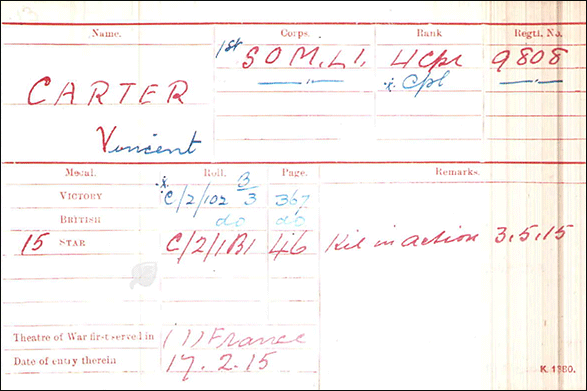 Name. Corps. Rank Regtl. No.
1st SOM. L.I. L/Cpl 9808
CARTER —„— x. Cpl —„—
Vincent
Medal. Roll. Page. Remarks.
VICTORY x C/2/102 B/3 367
BRITISH do do
15 STAR C/2/1B1 46 Kil in action 3.5.15
Theatre of War first served in (1) France
Date of entry therein 17.2.15
K. 1380.